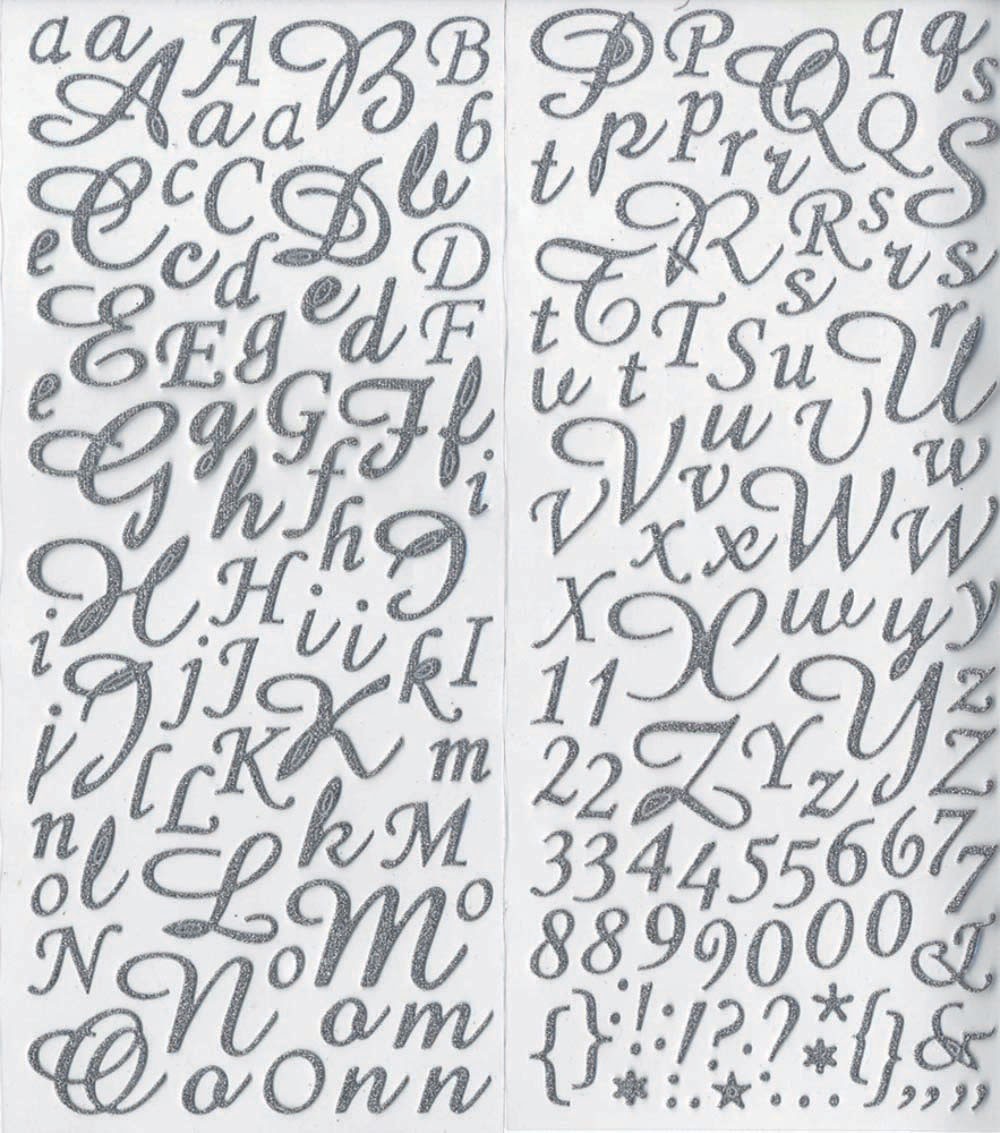 a a A B B
A a a b
C c C D b
e c d D
E E g e d F
e G g G F f
h f h i
H H i i I
i j J k I
j J l L K K m
n l L k M
o N N o M o
O a O n n o m
P P Q q q s
t p p r r Q S
R R s
T s r s
t t T S u U r
w u U
V V v w
x x W W
X X w y y
1 1 Y z
2 2 Z Y z Z
3 3 4 4 5 5 6 6 7 7
8 8 9 9 0 0 0 &
{ } ! : ! ? . ? * { } &
* : . * : . . , , , ,